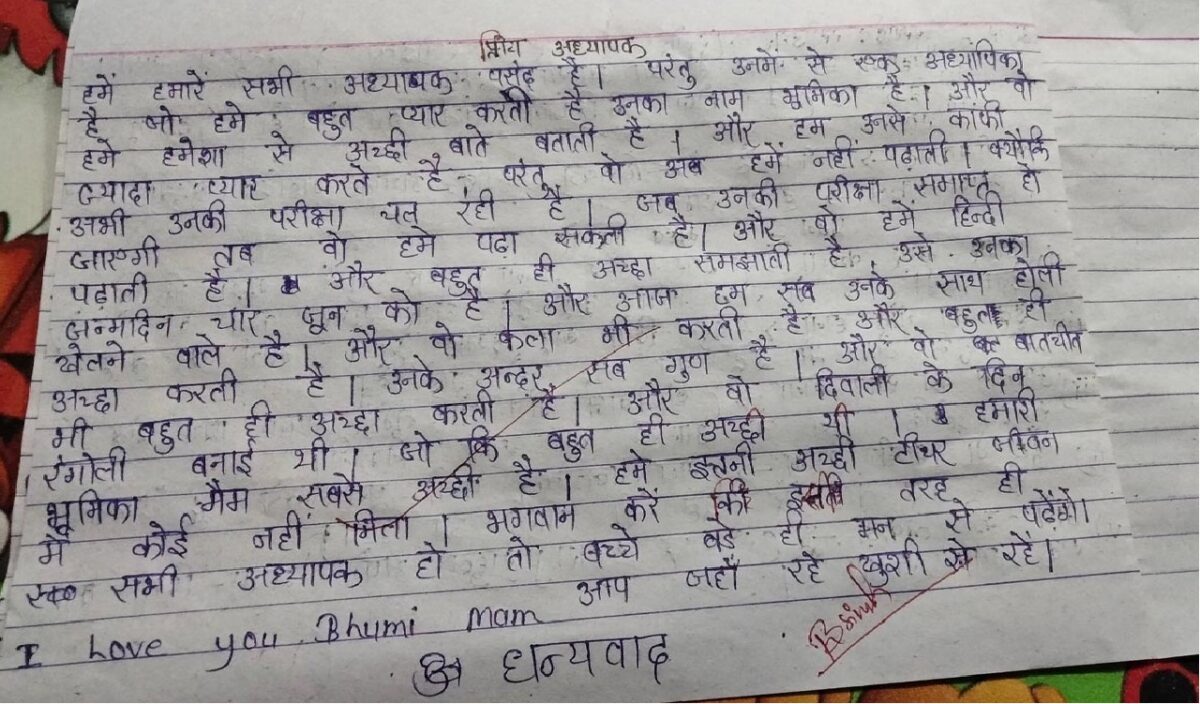 प्रिय अध्यापक
हमें हमारें सभी अध्यापक पसंद है। परंतु उनमें से एक अध्यापिका
है जो हमे बहुत प्यार करती है उनका नाम भुमिका है। और वो
हमे हमेशा से अच्छी बाते बताती है। और हम उनसे काफी
ज्यादा प्यार करते है परंतु वो अब हमें नहीं पढ़ाती। क्योकि
अभी उनकी परीक्षा चल रही है। जब उनकी परीक्षा समाप्त हो
जाएगी तब वो हमे पढ़ा सकती है। और वो हमें हिन्दी
पढ़ाती है। और बहुत ही अच्छा समझाती है, उसे उनका
जन्मदिन चार जून को है। और आज हम सब उनके साथ होली
खेलने वाले है। और वो कला भी करती है और बहुत ही
अच्छा करती है। उनके अन्दर सब गुण है। और वो बातचीत
भी बहुत ही अच्छा करती है। और वो दिवाली के दिन
रंगोली बनाई थी। जो कि बहुत ही अच्छी थी। हमारी
भूमिका मैम सबसे अच्छी है। हमे इतनी अच्छी टीचर जीवन
में कोई नहीं मिला। भगवान करें कि इसी तरह ही
सभी अध्यापक हो तो बच्चे बड़े ही मन से पढेंगे।
आप जहाँ रहे खुशी से रहें।
I Love you Bhumi Mam
धन्यवाद